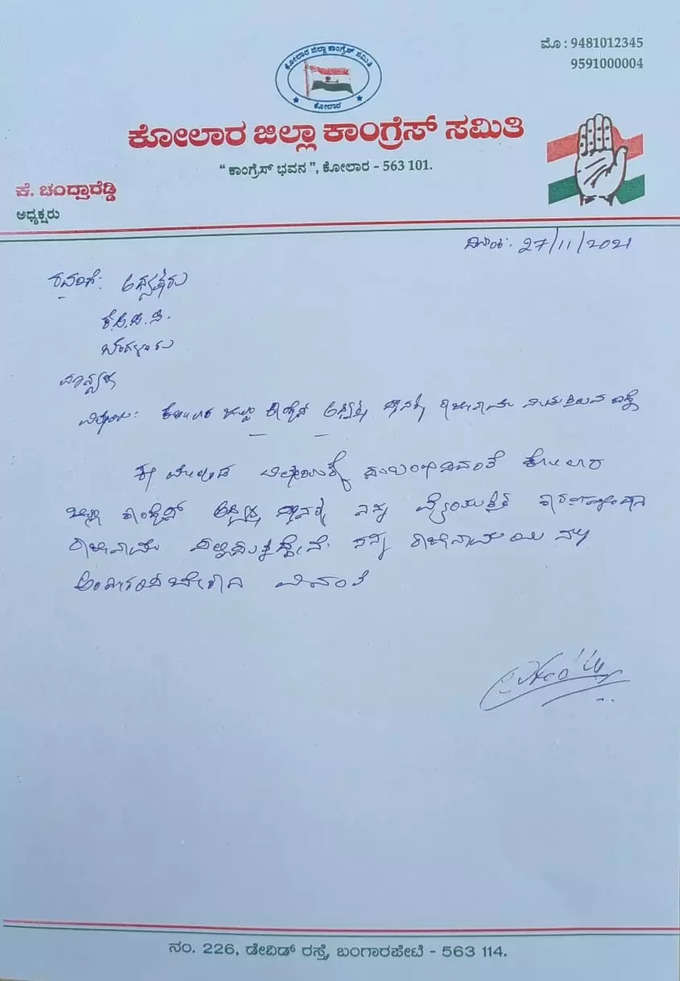 ಮೊ : 9481012345
9591000004
ಕೋಲಾರ ಜಿಲ್ಲಾ ಕಾಂಗ್ರೆಸ್ ಸಮಿತಿ
ಕೋಲಾರ
ಕೋಲಾರ ಜಿಲ್ಲಾ ಕಾಂಗ್ರೆಸ್ ಸಮಿತಿ
" ಕಾಂಗ್ರೆಸ್ ಭವನ ", ಕೋಲಾರ - 563 101.
ಕೆ. ಚಂದ್ರಾರೆಡ್ಡಿ
ಅಧ್ಯಕ್ಷರು
ದಿನಾಂಕ: 27/11/2021
ರವರಿಗೆ: ಅಧ್ಯಕ್ಷರು
ಕೆ.ಪಿ.ಸಿ.ಸಿ.
ಬೆಂಗಳೂರು
ಮಾನ್ಯರೆ
ವಿಷಯ: ಕೋಲಾರ ಜಿಲ್ಲಾ ಕಾಂಗ್ರೆಸ್ ಅಧ್ಯಕ್ಷ ಸ್ಥಾನಕ್ಕೆ ರಾಜೀನಾಮೆ ನೀಡುತ್ತಿರುವ ಬಗ್ಗೆ
ಈ ಮೇಲ್ಕಂಡ ವಿಷಯಕ್ಕೆ ಸಂಬಂಧಿಸಿದಂತೆ ಕೋಲಾರ
ಜಿಲ್ಲಾ ಕಾಂಗ್ರೆಸ್ ಅಧ್ಯಕ್ಷ ಸ್ಥಾನಕ್ಕೆ ನನ್ನ ವೈಯುಕ್ತಿಕ ಕಾರಣಗಳಿಂದಾಗಿ
ರಾಜೀನಾಮೆ ಸಲ್ಲಿಸುತ್ತಿದ್ದೇನೆ. ನನ್ನ ರಾಜೀನಾಮೆಯನ್ನು
ಅಂಗೀಕರಿಸಬೇಕಾಗಿ ವಿನಂತಿ
ನಂ. 226, ಡೇವಿಡ್ ರಸ್ತೆ, ಬಂಗಾರಪೇಟೆ - 563 114.